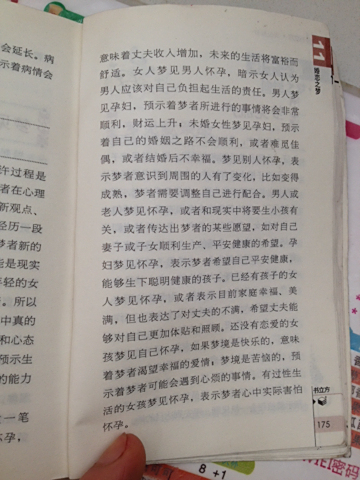 会延长。病
示着病情会
许过程是
者在心理
新观点、
经历一段
梦者新的
能是现实
年轻的女
。所以
中真的
和心态
预示生
的能力
一笔
意味着丈夫收入增加，未来的生活将富裕而
舒适。女人梦见男人怀孕，暗示女人认为
男人应该对自己负担起生活的责任。男人梦
见孕妇，预示着梦者所进行的事情将会非常
顺利，财运上升；未婚女性梦见孕妇，预示
着自己的婚姻之路不会顺利，或者难觅佳
偶，或者结婚后不幸福。梦见别人怀孕，表
示梦者意识到周围的人有了变化，比如变得
成熟，梦者需要调整自己进行配合。男人或
老人梦见怀孕，或者和现实中将要生小孩有
关，或者传达出梦者的某些愿望，如对自己
妻子或子女顺利生产、平安健康的希望。孕
妇梦见怀孕，表示梦者希望自己平安健康，
能够生下聪明健康的孩子。已经有孩子的女
人梦见怀孕，或者表示目前家庭幸福、美
满，但也表达了对丈夫的不满，希望丈夫能
够对自己更加体贴和照顾。还没有恋爱的女
孩梦见自己怀孕，如果梦境是快乐的，意味
着梦者渴望幸福的爱情，梦境是苦恼的，预
示着梦者可能会遇到心烦的事情。有过性生
活的女孩梦见怀孕，表示梦者心中实际害怕
怀孕。
11
婚恋之梦
书立方
175
8 +1